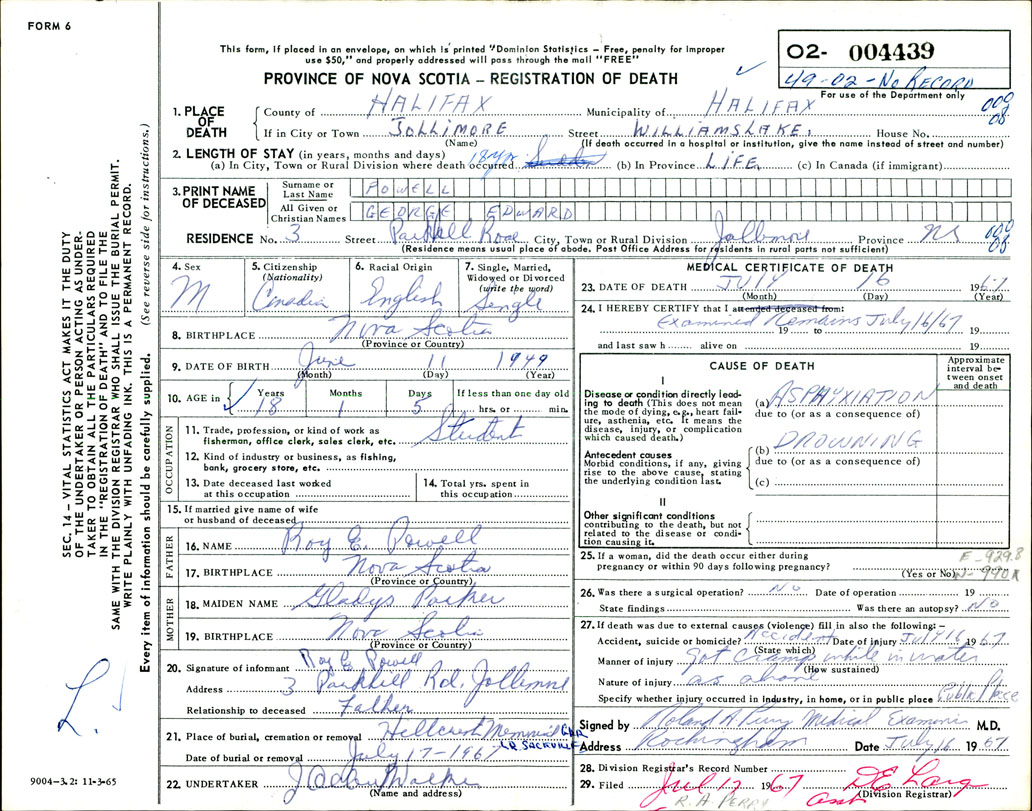 FORM 6
This form, if placed in an envelope, on which is printed "Dominion Statistics – Free, penalty for improper
use $50," and properly addressed will pass through the mail "FREE"
PROVINCE OF NOVA SCOTIA – REGISTRATION OF DEATH
02- 004439
49-02-NO RECORD
For use of the Department only
1. PLACE OF DEATH
County of HALIFAX Municipality of HALIFAX
If in City or Town JOLLIMORE Street WILLIAMSLAKE House No.
(Name) (If death occurred in a hospital or institution, give the name instead of street and number)
2. LENGTH OF STAY (in years, months and days)
(a) In City, Town or Rural Division where death occurred 18 yr (b) In Province LIFE (c) In Canada (if immigrant)
3. PRINT NAME OF DECEASED
Surname or Last Name POWELL
All Given or Christian Names GEORGE EDWARD
RESIDENCE No. 3 Street Parkhill Road City, Town or Rural Division Jollimore Province NS
(Residence means usual place of abode. Post Office Address for residents in rural parts not sufficient)
4. Sex M
5. Citizenship (Nationality) Canadian
6. Racial Origin English
7. Single, Married, Widowed or Divorced (write the word) Single
8. BIRTHPLACE Nova Scotia
(Province or Country)
9. DATE OF BIRTH June 11 1949
(Month) (Day) (Year)
10. AGE in Years 18 Months 1 Days 5 If less than one day old hrs. or min.
OCCUPATION
11. Trade, profession, or kind of work as fisherman, office clerk, sales clerk, etc. Student
12. Kind of industry or business, as fishing, bank, grocery store, etc.
13. Date deceased last worked at this occupation
14. Total yrs. spent in this occupation
15. If married give name of wife or husband of deceased
FATHER
16. NAME Roy E. Powell
17. BIRTHPLACE Nova Scotia
(Province or Country)
MOTHER
18. MAIDEN NAME Gladys Parker
19. BIRTHPLACE Nova Scotia
(Province or Country)
20. Signature of informant Roy E. Powell
Address 3 Parkhill Rd. Jollimore
Relationship to deceased Father
21. Place of burial, cremation or removal Hillcrest Memorial GDR
LR SACKVILLE
Date of burial or removal July 17-1967
22. UNDERTAKER
(Name and address)
MEDICAL CERTIFICATE OF DEATH
23. DATE OF DEATH JULY 16 1967
(Month) (Day) (Year)
24. I HEREBY CERTIFY that I attended deceased from:
Examined Remains July/16/67
19 to 19
and last saw h alive on 19
CAUSE OF DEATH
Approximate interval between onset and death
I
Disease or condition directly leading to death (This does not mean the mode of dying, e.g., heart failure, asthenia, etc. It means the disease, injury, or complication which caused death.)
(a) ASPHYXIATION
due to (or as a consequence of)
Antecedent causes
Morbid conditions, if any, giving rise to the above cause, stating the underlying condition last.
(b) DROWNING
due to (or as a consequence of)
(c)
II
Other significant conditions
contributing to the death, but not related to the disease or condition causing it.
25. If a woman, did the death occur either during pregnancy or within 90 days following pregnancy?
(Yes or No)
E-929.8
N-990X
26. Was there a surgical operation? No Date of operation 19
State findings Was there an autopsy? NO
27. If death was due to external causes (violence) fill in also the following:–
Accident, suicide or homicide? Accident Date of injury July 16 1967
(State which)
Manner of injury Got cramp while in water
(How sustained)
Nature of injury as above
Specify whether injury occurred in industry, in home, or in public place Public Place
Signed by Roland A Perry Medical Examiner M.D.
Address Rockingham Date July 16 1967
28. Division Registrar's Record Number
29. Filed Jul 17 1967
(Division Registrar)
R.A PERRY
SEC. 14 – VITAL STATISTICS ACT MAKES IT THE DUTY
OF THE UNDERTAKER OR PERSON ACTING AS UNDER-
TAKER TO OBTAIN ALL THE PARTICULARS REQUIRED
IN THE "REGISTRATION OF DEATH" AND TO FILE THE
SAME WITH THE DIVISION REGISTRAR WHO SHALL ISSUE THE BURIAL PERMIT.
WRITE PLAINLY WITH UNFADING INK. THIS IS A PERMANENT RECORD.
Every item of information should be carefully supplied. (See reverse side for instructions.)
9004-3.2: 11-3-65